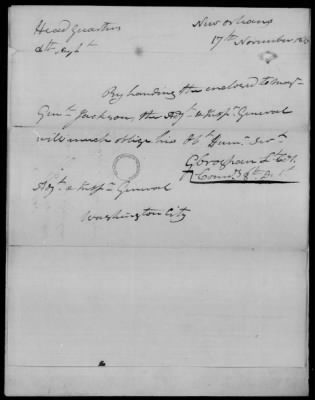 Head Quarters New Orleans
8th Regt 17th November
By handing the enclosed to Maj.
Genl Jackson, the Adjt & Insp. General
will much oblige his Obt Hum. Svt.
G Croghan Lt Col.
Comg 8th
Adjt & Insp. General
Washington City